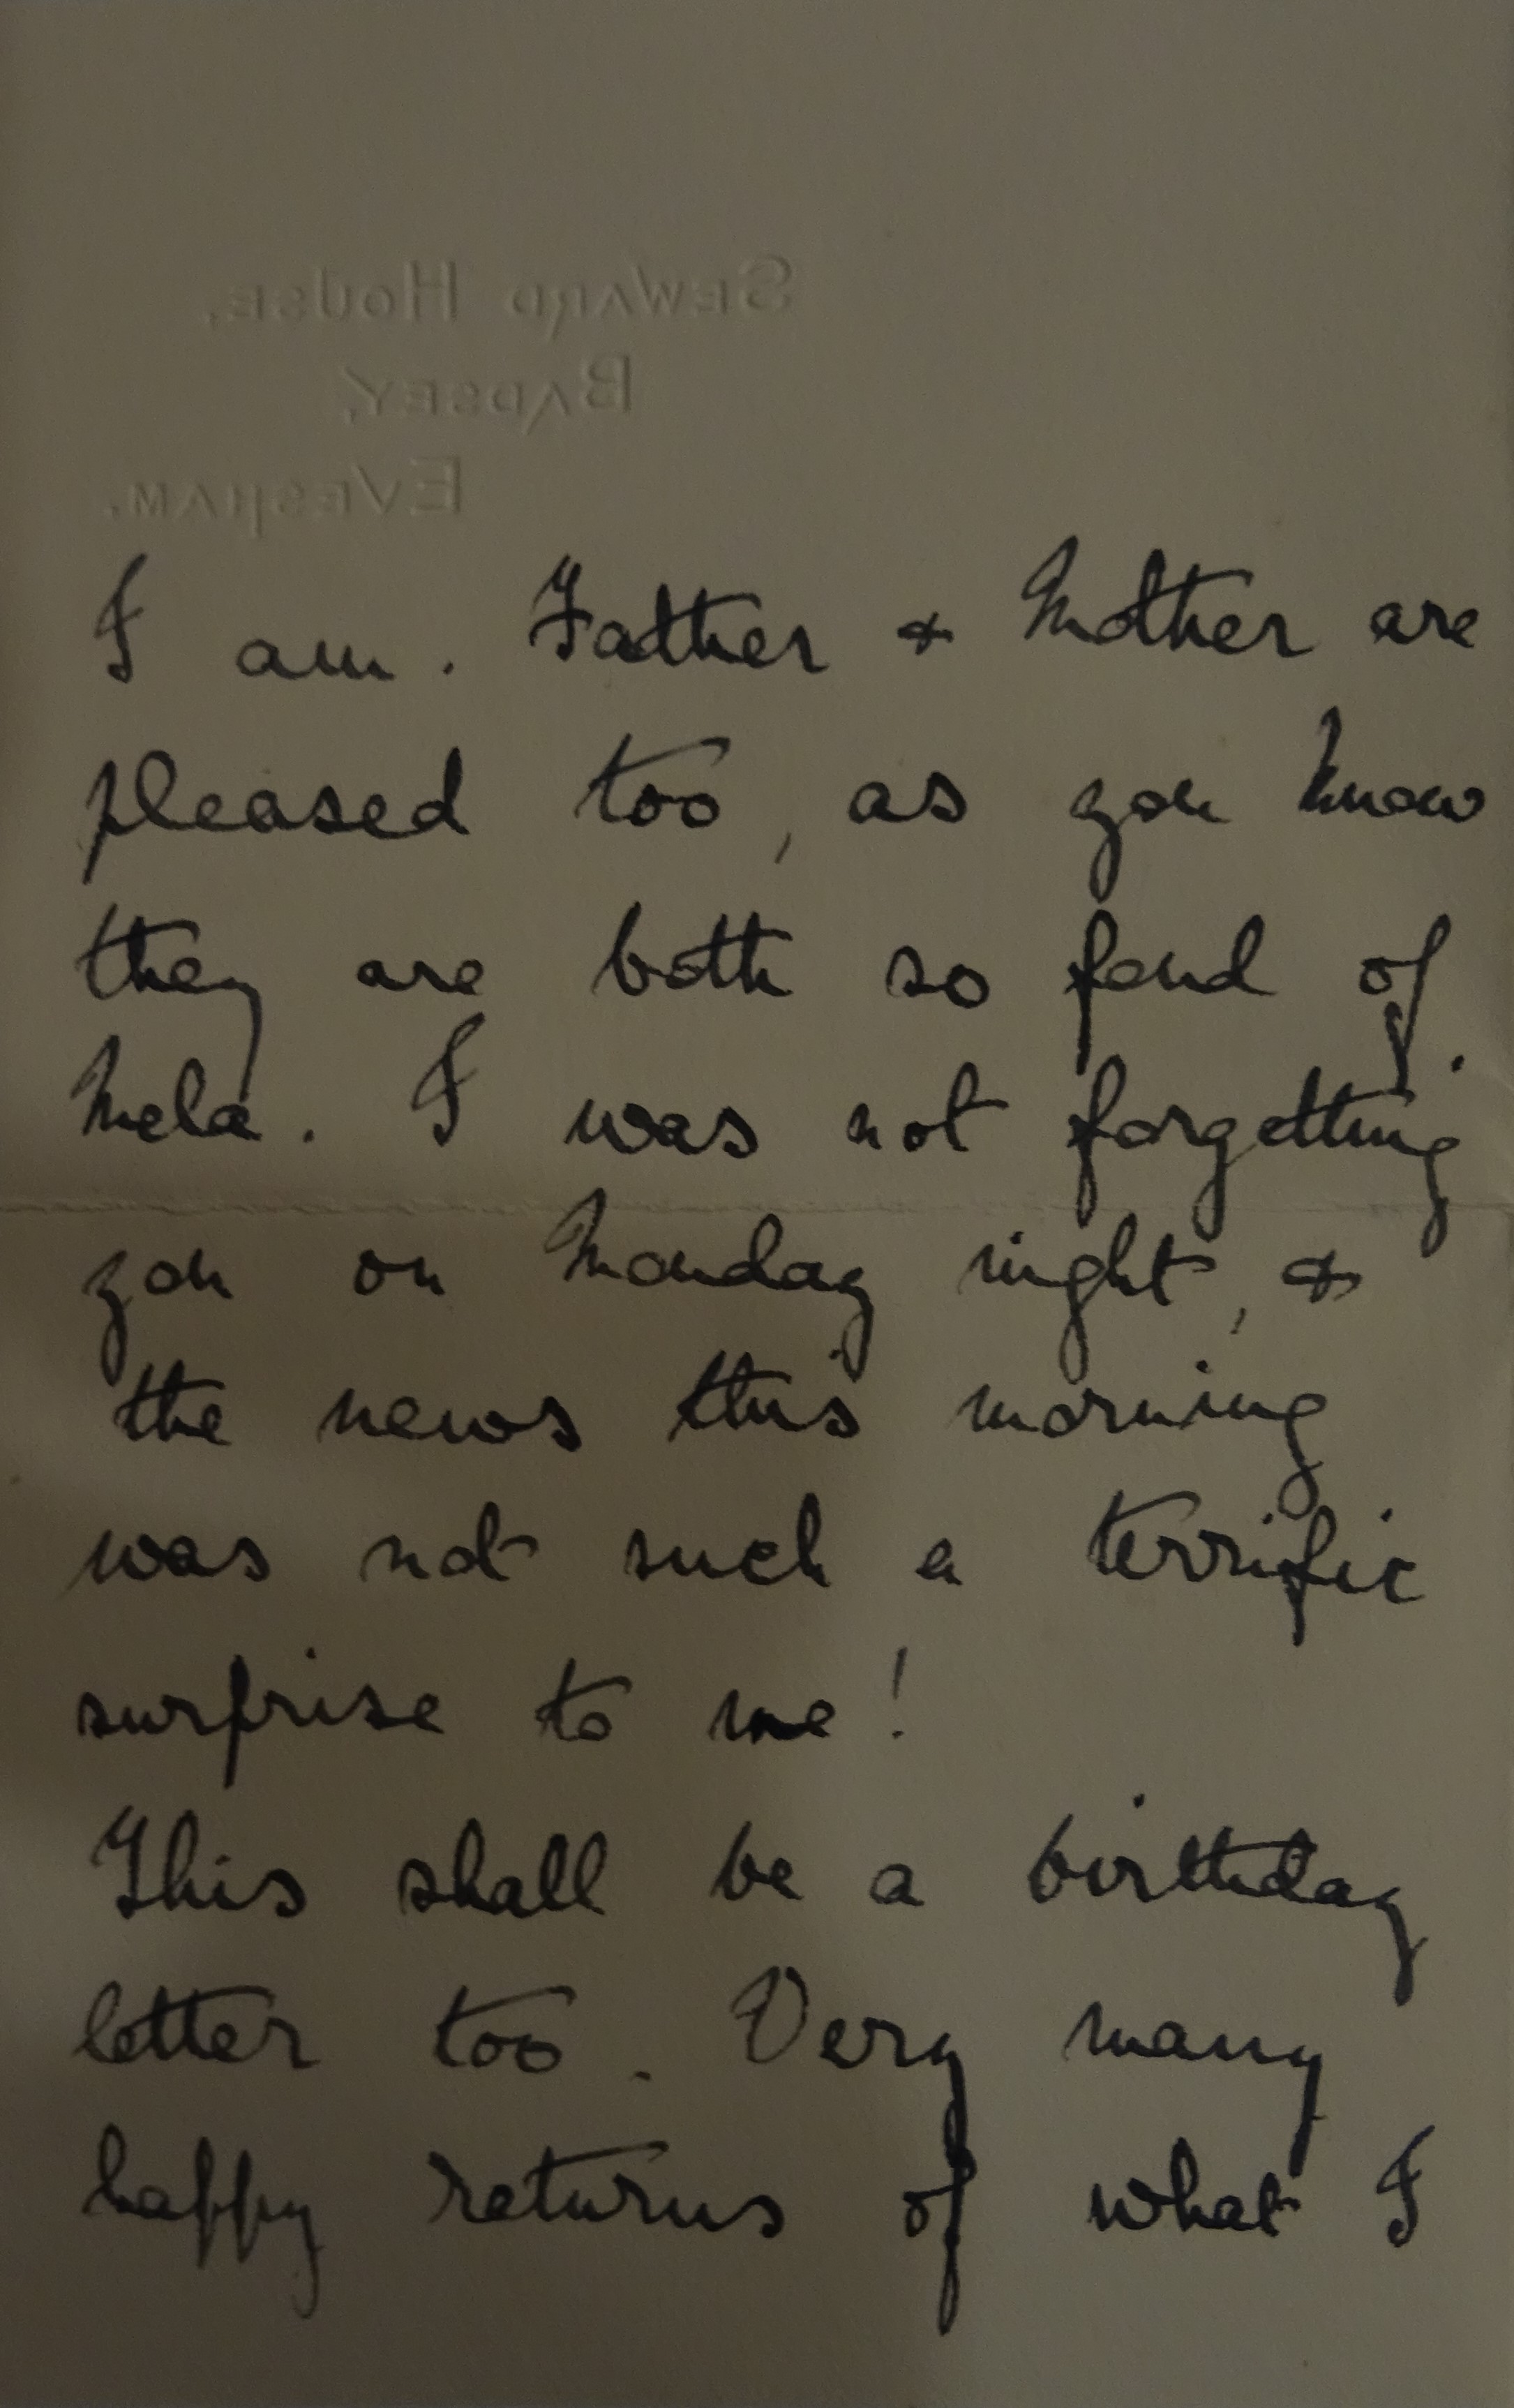 Seward House,
Badsey,
Evesham.
I am. Father & Mother are
pleased too, as you know
they are both so fond of
Mela. I was not forgetting
you on Monday night, &
the news this morning
was not such a terrific
surprise to me!
This shall be a birthday
letter too. Very many
happy returns of what I